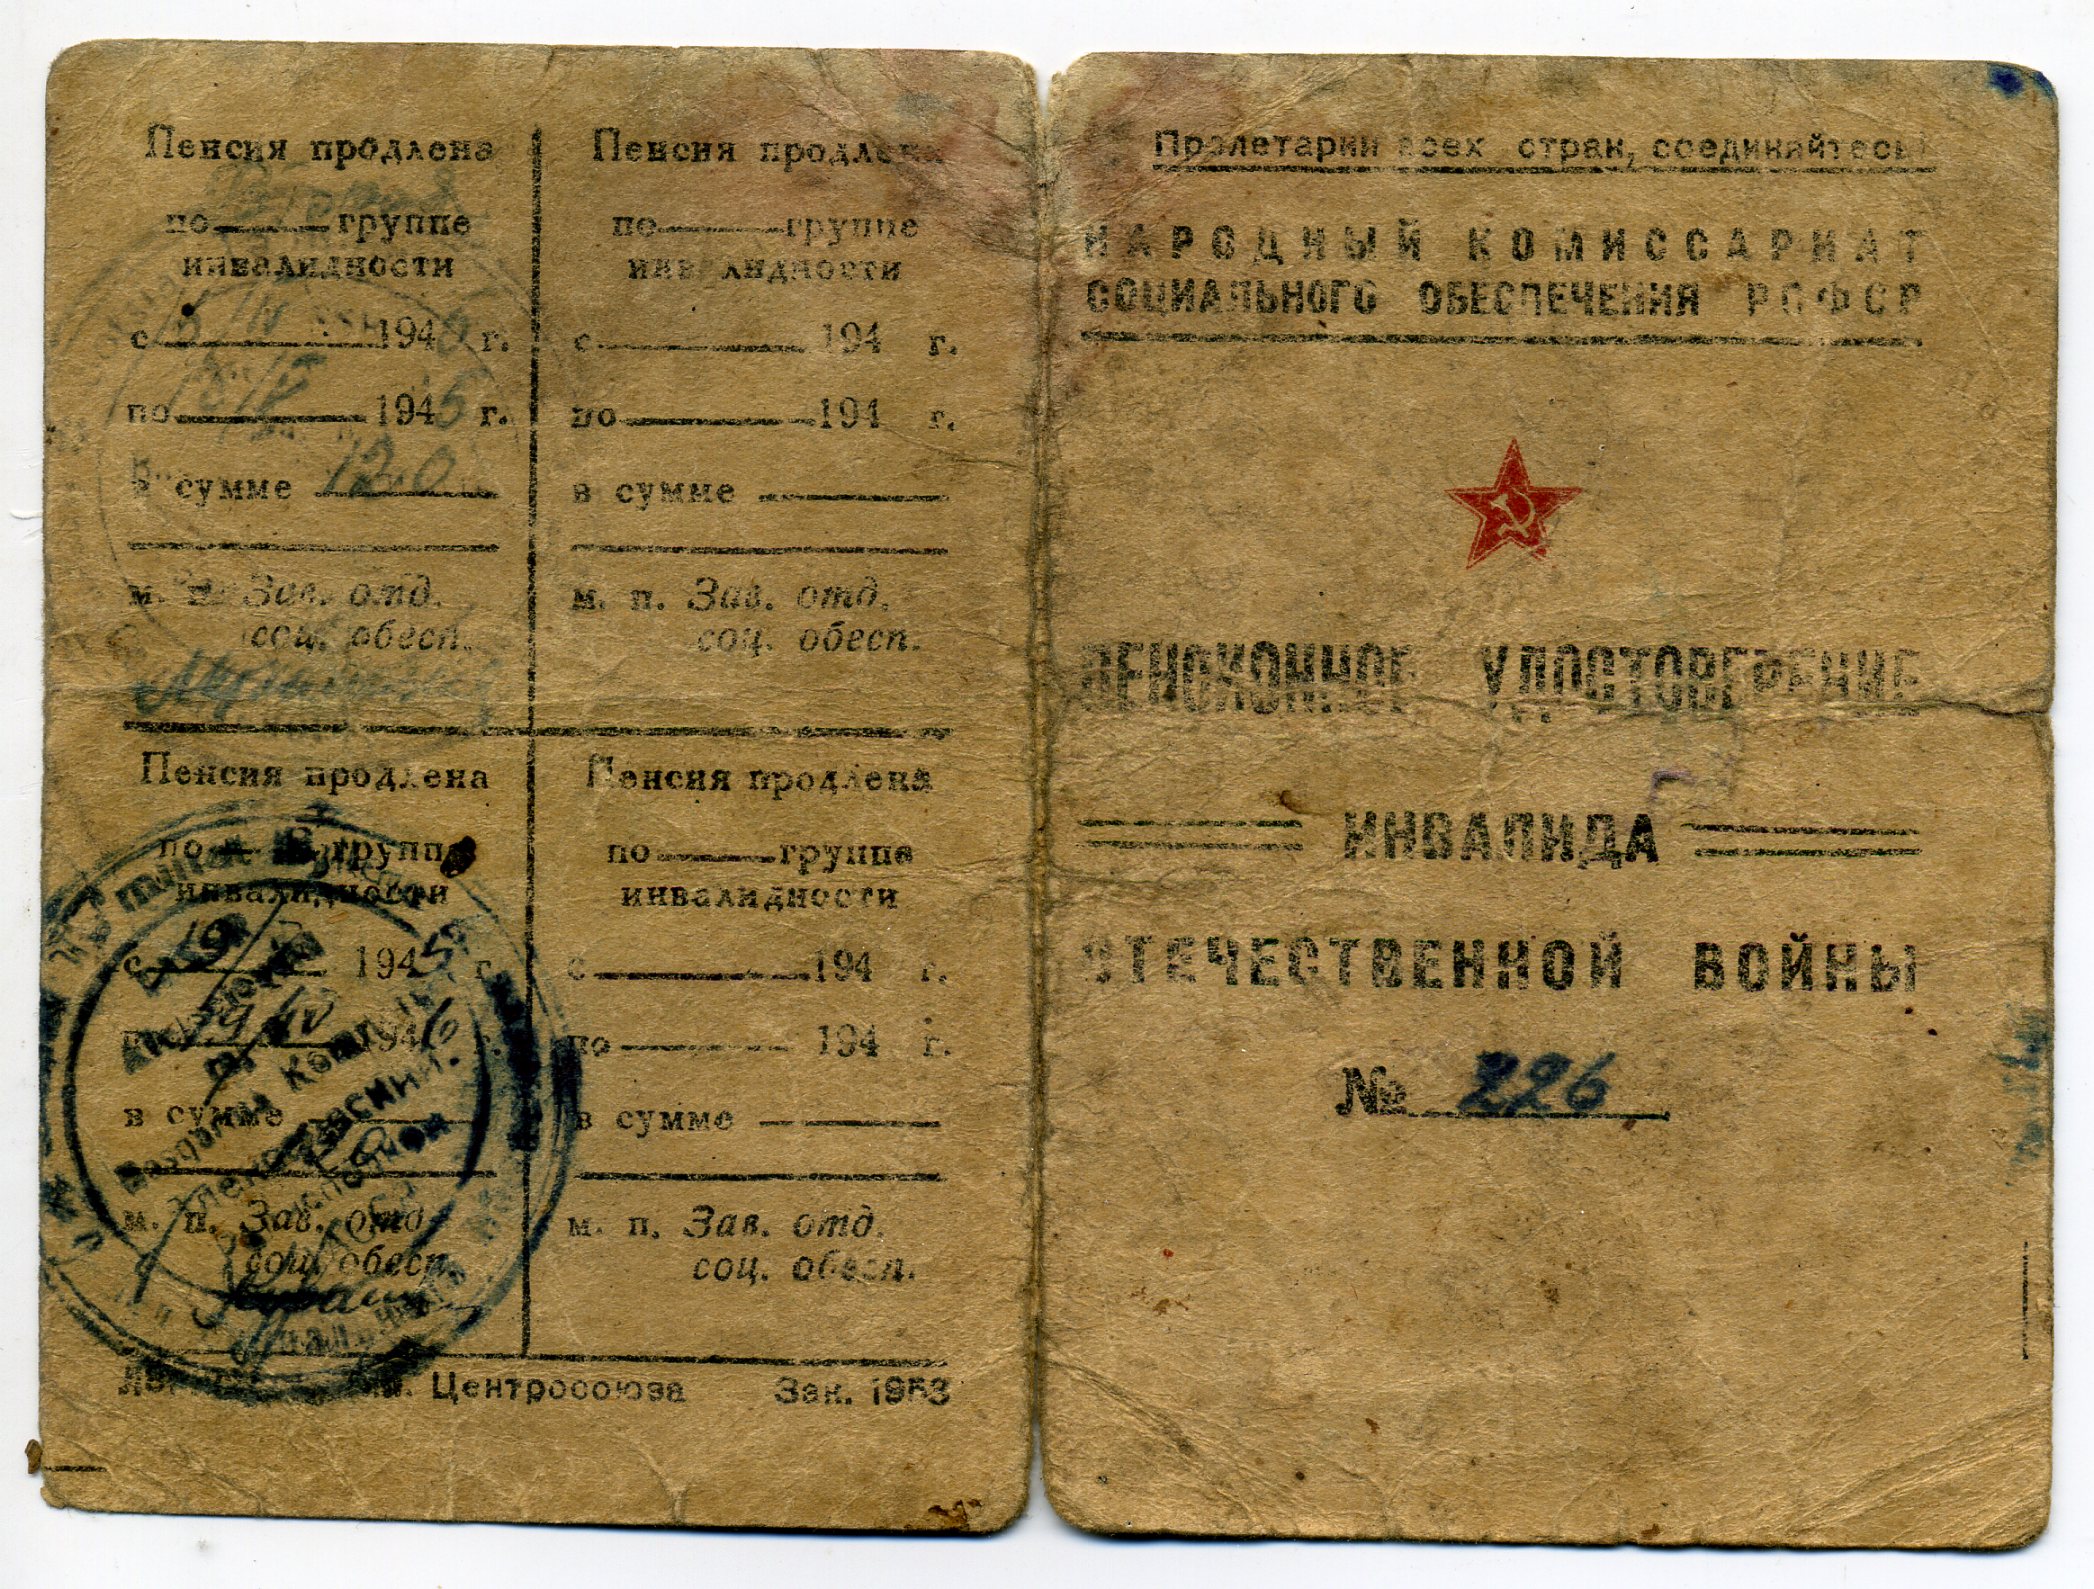 Пенсия продлена
по группе
инвалидности
с 194 г.
по 1945 г.
в сумме 120
м. п. Зав. отд.
соц. обесп.
Пенсия продлена
по группе
инвалидности
с 194 г.
по 194 г.
в сумме
м. п. Зав. отд.
соц. обесп.
Пенсия продлена
по группе
инвалидности
с 19 1945 г.
1946 г.
в сумме
м. п. Зав. отд.
соц. обесп.
Пенсия продлена
по группе
инвалидности
с 194 г.
по 194 г.
в сумме
м. п. Зав. отд.
соц. обесп.
Центросоюза Зак. 1953
Пролетарии всех стран, соединяйтесь!
НАРОДНЫЙ КОМИССАРИАТ
СОЦИАЛЬНОГО ОБЕСПЕЧЕНИЯ РСФСР
ПЕНСИОННОЕ УДОСТОВЕРЕНИЕ
ИНВАЛИДА
ОТЕЧЕСТВЕННОЙ ВОЙНЫ
№ 226